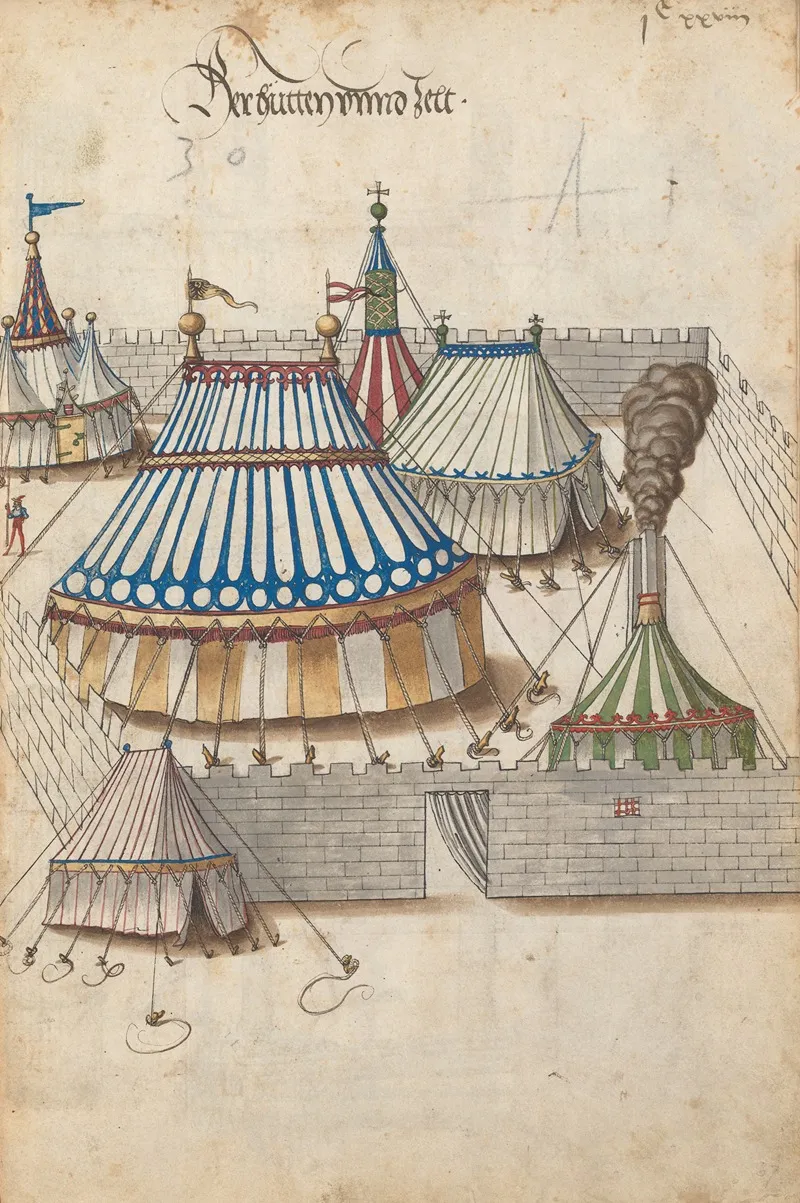 jC xxviij
Der hütten vnnd Zelt.
3 0
A